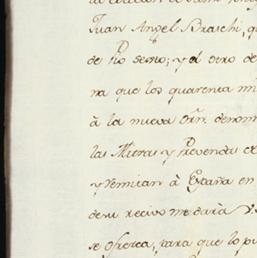 la eleccion de
Juan Angel Braschi, q
de Pio sexto; y el otro de
ra que los quarenta mi
à la nueva Orn. denom
las Mitras y Prevendas
y remitan à España en
de su recivo me darà V
se ofrezca, para que lo pu